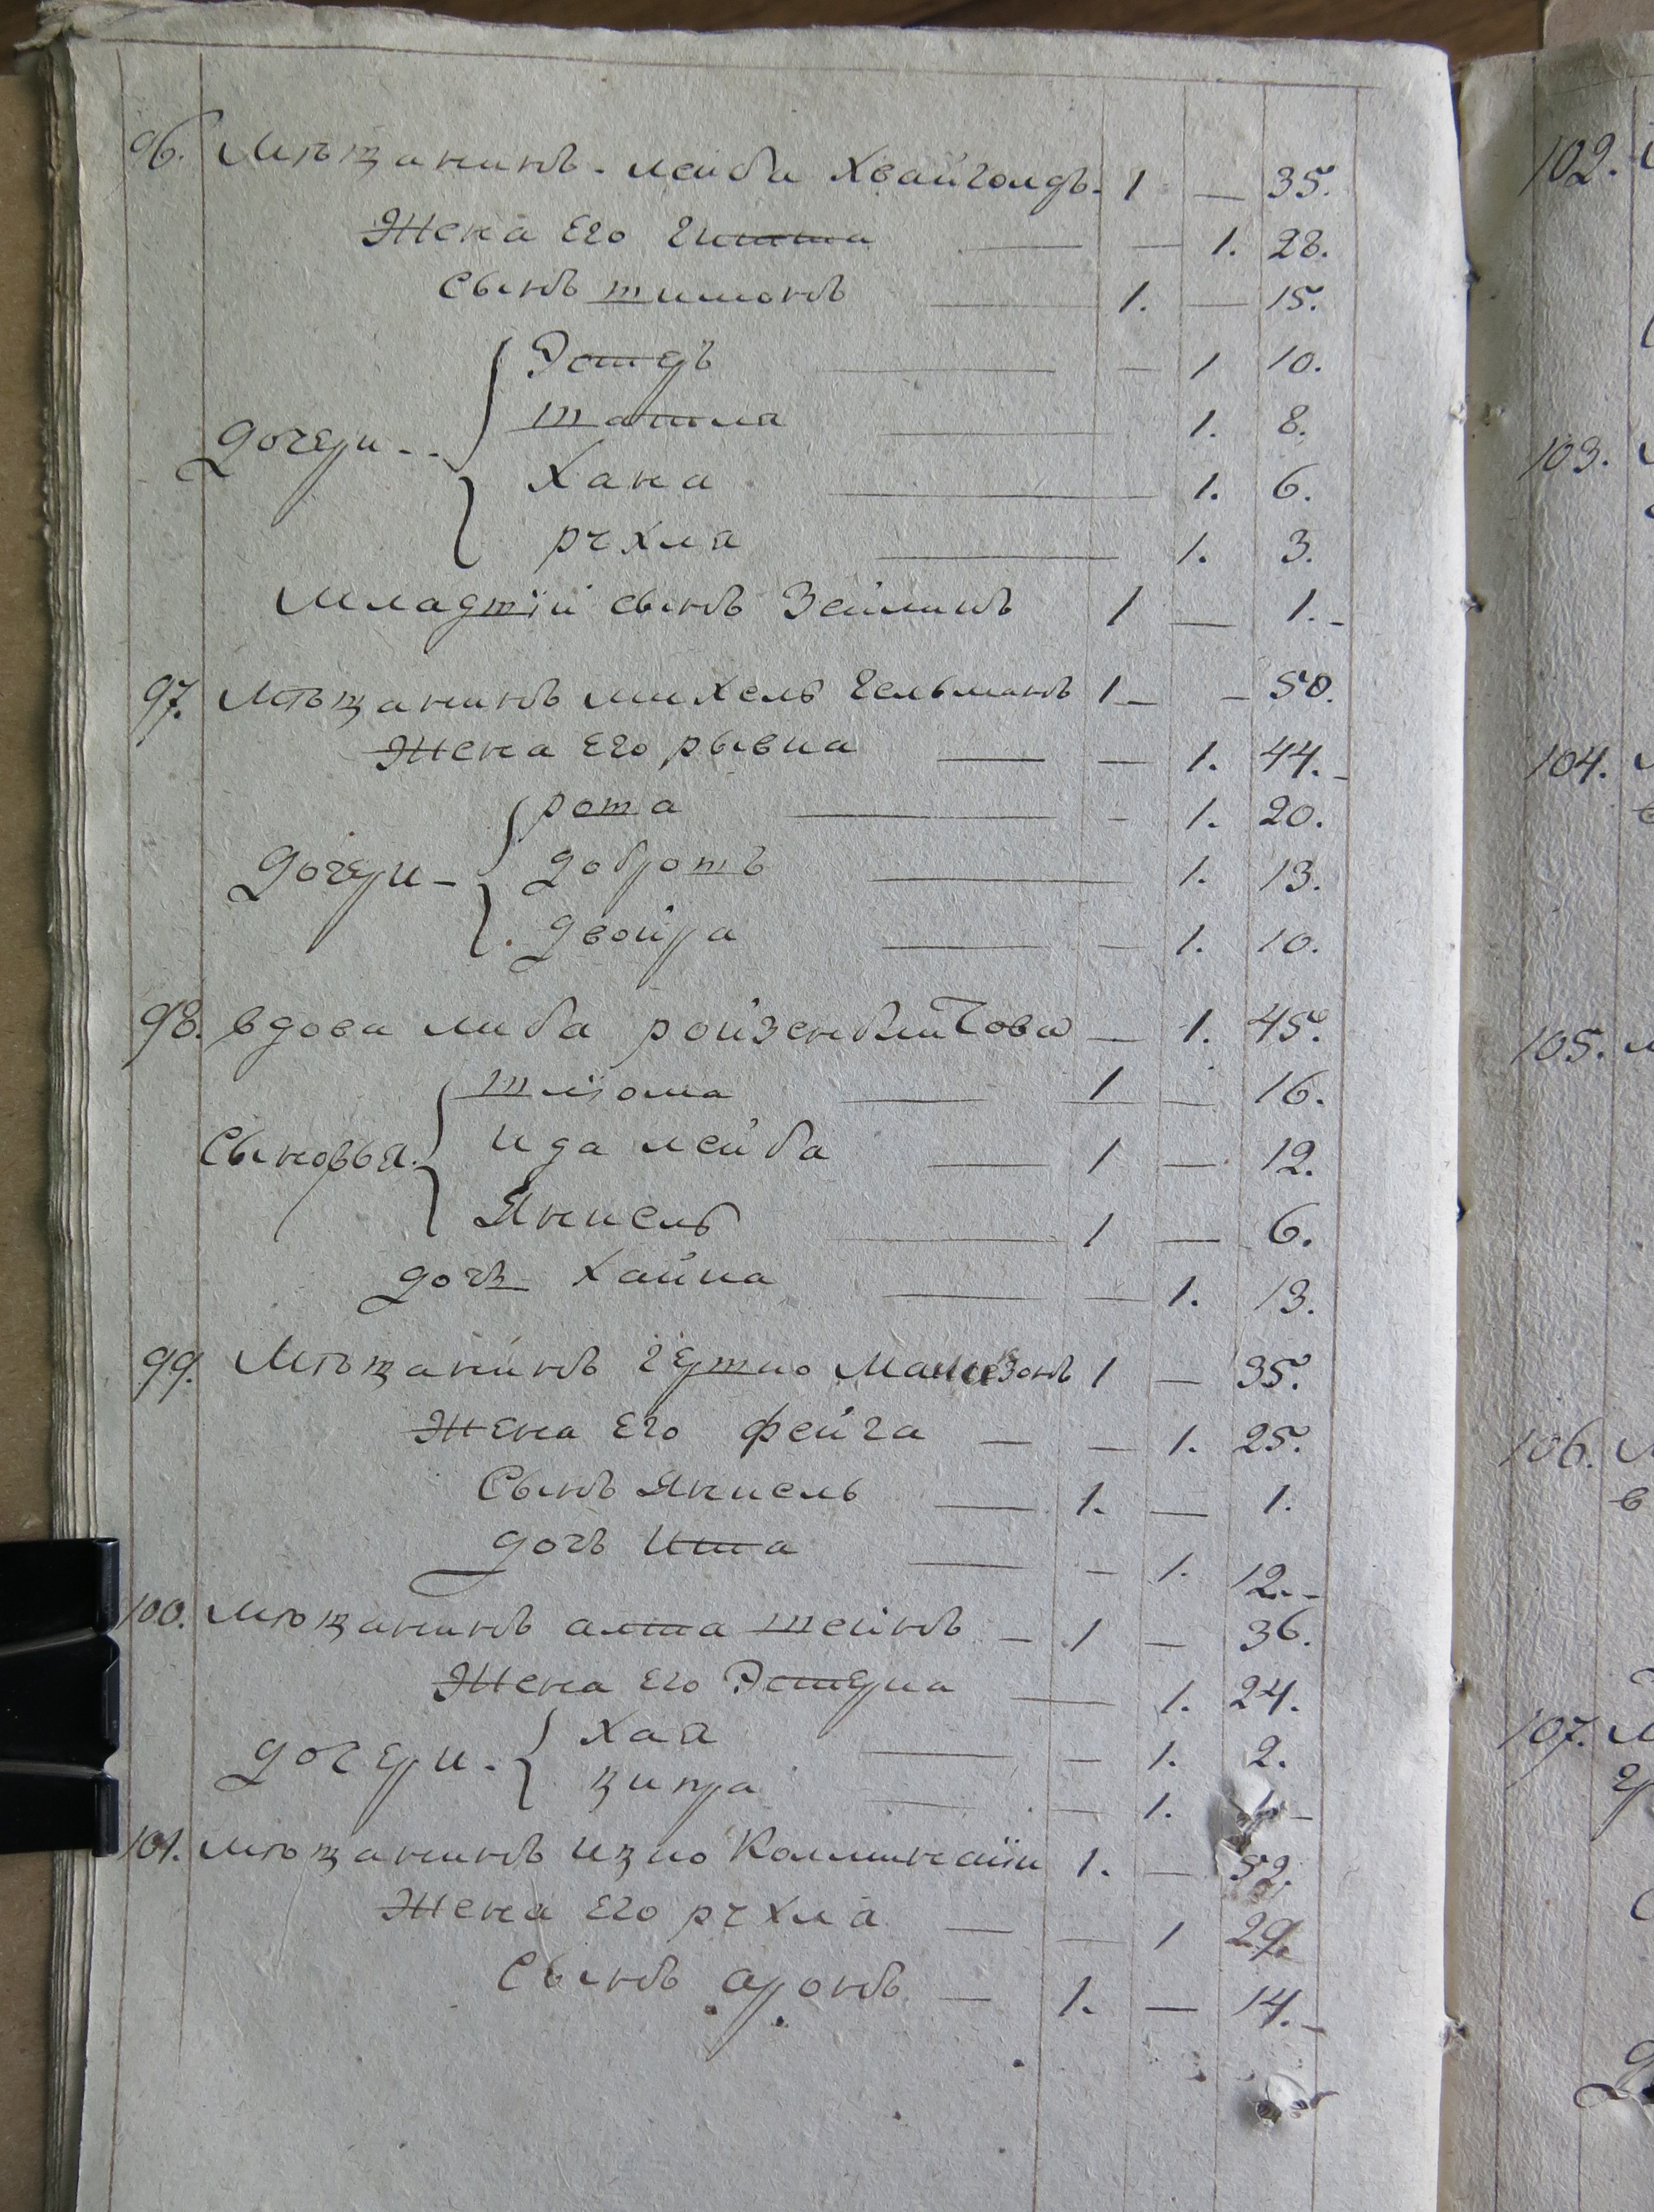 96. Мѣщанинъ - лейба Хвайголдъ - 1 — 35.
Жена Его гитла — — 1. 28.
Сынъ шимонъ — 1. — 15.
Дочери - - Эстеръ — — 1 10.
матла — 1. 8.
Хана — 1. 6.
рухля — 1. 3.
Младшій сынъ Зейликъ 1 — 1. -
97. Мѣщанинъ михель гельманъ 1 — — 50.
Жена Его рывка — — 1. 44. -
Дочери - роша — - 1. 20.
доброшъ — 1. 13.
двойра — — 1. 10.
98. вдова либа — 1. 45.
Сыновья шліома — 1 — 16.
ида лейба — 1 — 12.
Янкель — 1 — 6.
дочь Хайка — — 1. 13.
99. Мѣщанинъ гершко 1 — 35.
Жена Его фейга — — 1. 25.
Сынъ Янкель — 1. — 1.
дочь Итта — - 1. 12. -
100. Мѣщанинъ алтла шейнъ — 1 — 36.
Жена Его Эстерка — 1. 24.
дочери - хая — — 1. 2.
ципра — — 1.
101. мѣщанинъ ицко 1. — 52.
Жена Его рухля — — 1 29.
Сынъ аронъ — 1. — 14. -
102.
103.
104.
105.
106.
107.